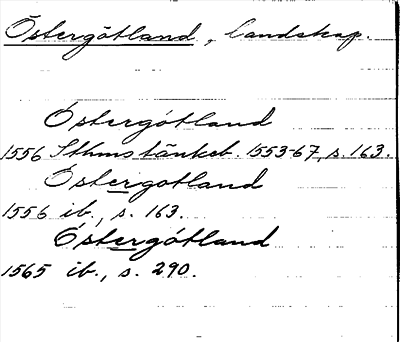 Östergötland, landskap.
Óstergótland
1556 Sthms tänkeb. 1553-67, s. 163.
Óstergotland
1556 ib., s. 163.
Óstergótland
1565 ib., s. 290.